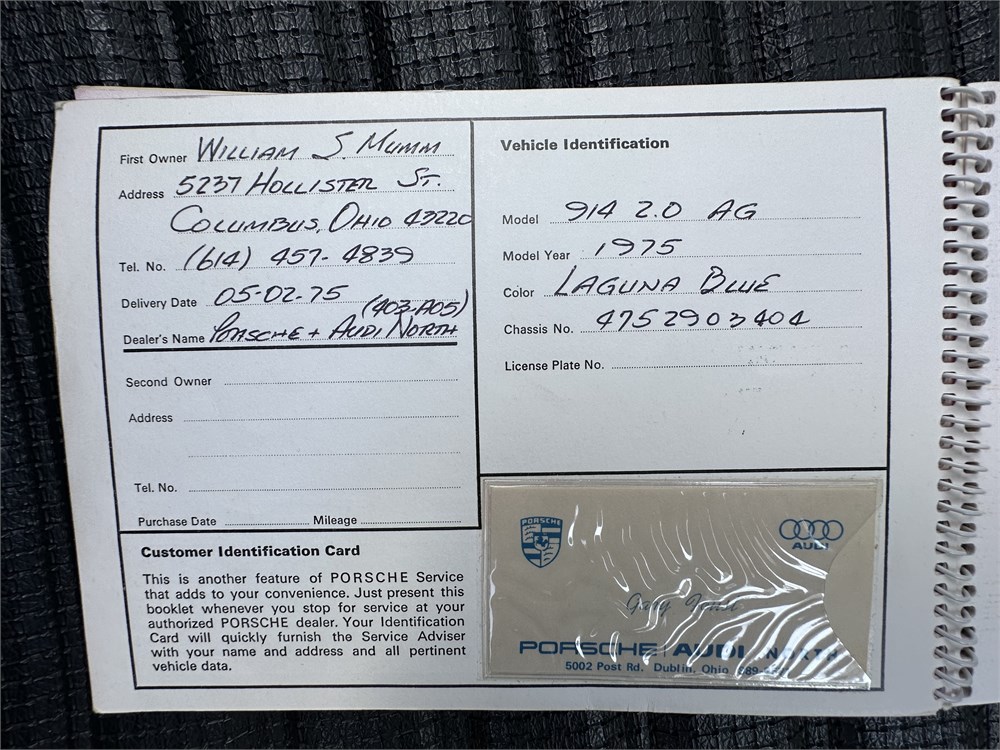 First Owner WILLIAM S. MUMM
Address 5237 HOLLISTER ST.
COLUMBUS, OHIO 43220
Tel. No. (614) 457-4839
Delivery Date 05-02-75 (403-A05)
Dealer's Name PORSCHE + AUDI NORTH
Second Owner
Address
Tel. No.
Purchase Date Mileage
Customer Identification Card
This is another feature of PORSCHE Service
that adds to your convenience. Just present this
booklet whenever you stop for service at your
authorized PORSCHE dealer. Your Identification
Card will quickly furnish the Service Adviser
with your name and address and all pertinent
vehicle data.
Vehicle Identification
Model 914 2.0 AG
Model Year 1975
Color LAGUNA BLUE
Chassis No. 4752903404
License Plate No.
PORSCHE
AUDI
Gary
PORSCHE AUDI NORTH
5002 Post Rd. Dublin, Ohio